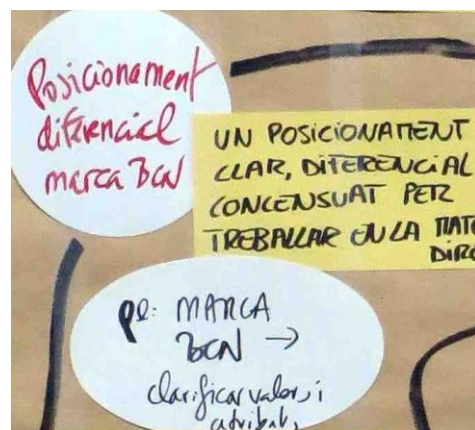 Posicionament
diferencial
marca BCN
UN POSICIONAMENT
CLAR, DIFERENCIAL
CONCENSUAT PER
TREBALLAR EN LA MATE
DIREC
pe: MARCA
BCN →
clarificar valors i
atributs